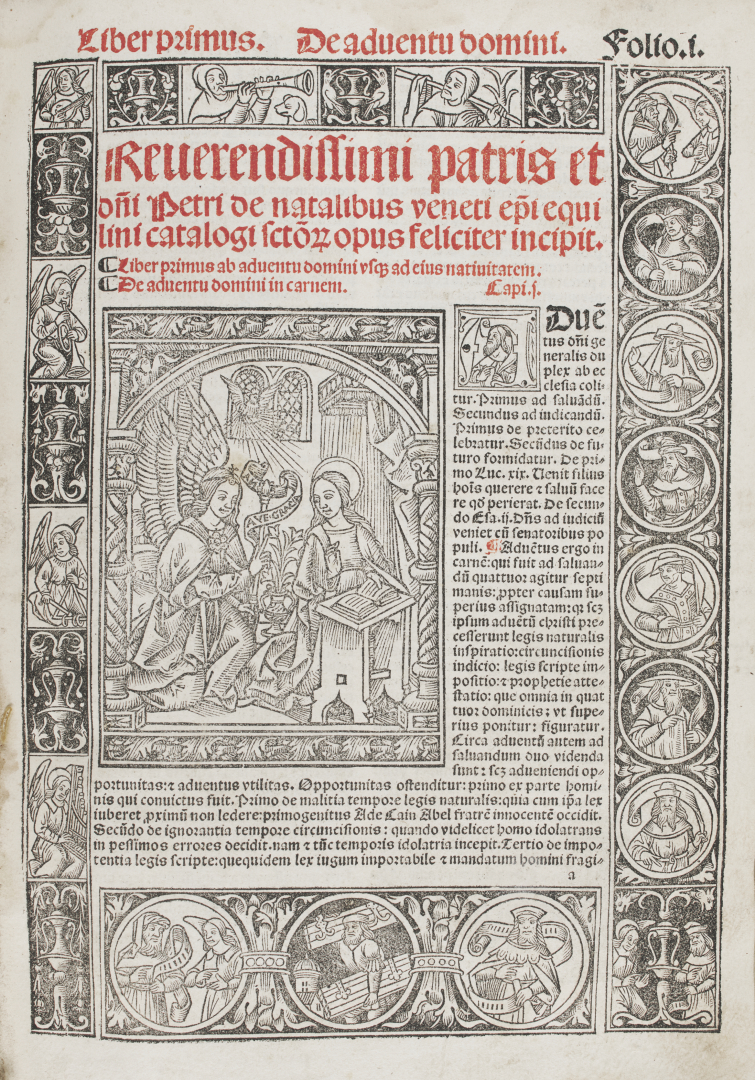 Liber primus. De aduentu domini. Folio.i.
Reuerendissimi patris et
dn̄i Petri de natalibus veneti ep̄i equi
lini catalogi sctōꝝ opus feliciter incipit.
¶Liber primus ab aduentu domini vsqꝫ ad eius natiuitatem.
¶De aduentu domini in carnem. Capi.j.
AVE·GRACI
Duē
tus dn̄i ge
neralis du
plex ab ec
clesia coli
tur. Primus ad saluādū.
Secundus ad indicandū.
Primus de preterito ce⸗
lebratur. Secūdus de fu⸗
turo formidatur. De pri⸗
mo Luc. xix. Uenit filius
hoīs querere ⁊ saluū face
re qd̄ perierat. De secun⸗
do Esa.ij. Dn̄s ad iudiciū
veniet cū senatoribus po
puli. ¶Aduētus ergo in
carnē: qui fuit ad saluan⸗
dū quattuor agitur septi
manis: ꝓpter causam su⸗
perius assignatam: qꝛ scꝫ
ipsum aduētū christi pre⸗
cesserunt legis naturalis
inspiratio: circuncisionis
indicio: legis scripte im⸗
positio: ⁊ prophetie atte⸗
statio: que omnia in quat
tuor dominicis: vt supe⸗
rius ponitur: figuratur.
Circa aduentū autem ad
saluandum duo videnda
sunt: scꝫ adueniendi op⸗
portunitas: ⁊ aduentus vtilitas. Opportunitas ostenditur: primo ex parte homi⸗
nis qui conuictus fuit. Primo de malitia tempore legis naturalis: quia cum ip̄a lex
iuberet ,ꝓximū non ledere: primogenitus Ade Cain Abel fratrē innocentē occidit.
Secūdo de ignorantia tempore circuncisionis: quando videlicet homo idolatrans
in pessimos errores decidit. nam ⁊ tūc temporis idolatria incepit. Tertio de impo⸗
tentia legis scripte: quequidem lex iugum importabile ⁊ mandatum homini fragi⸗
a